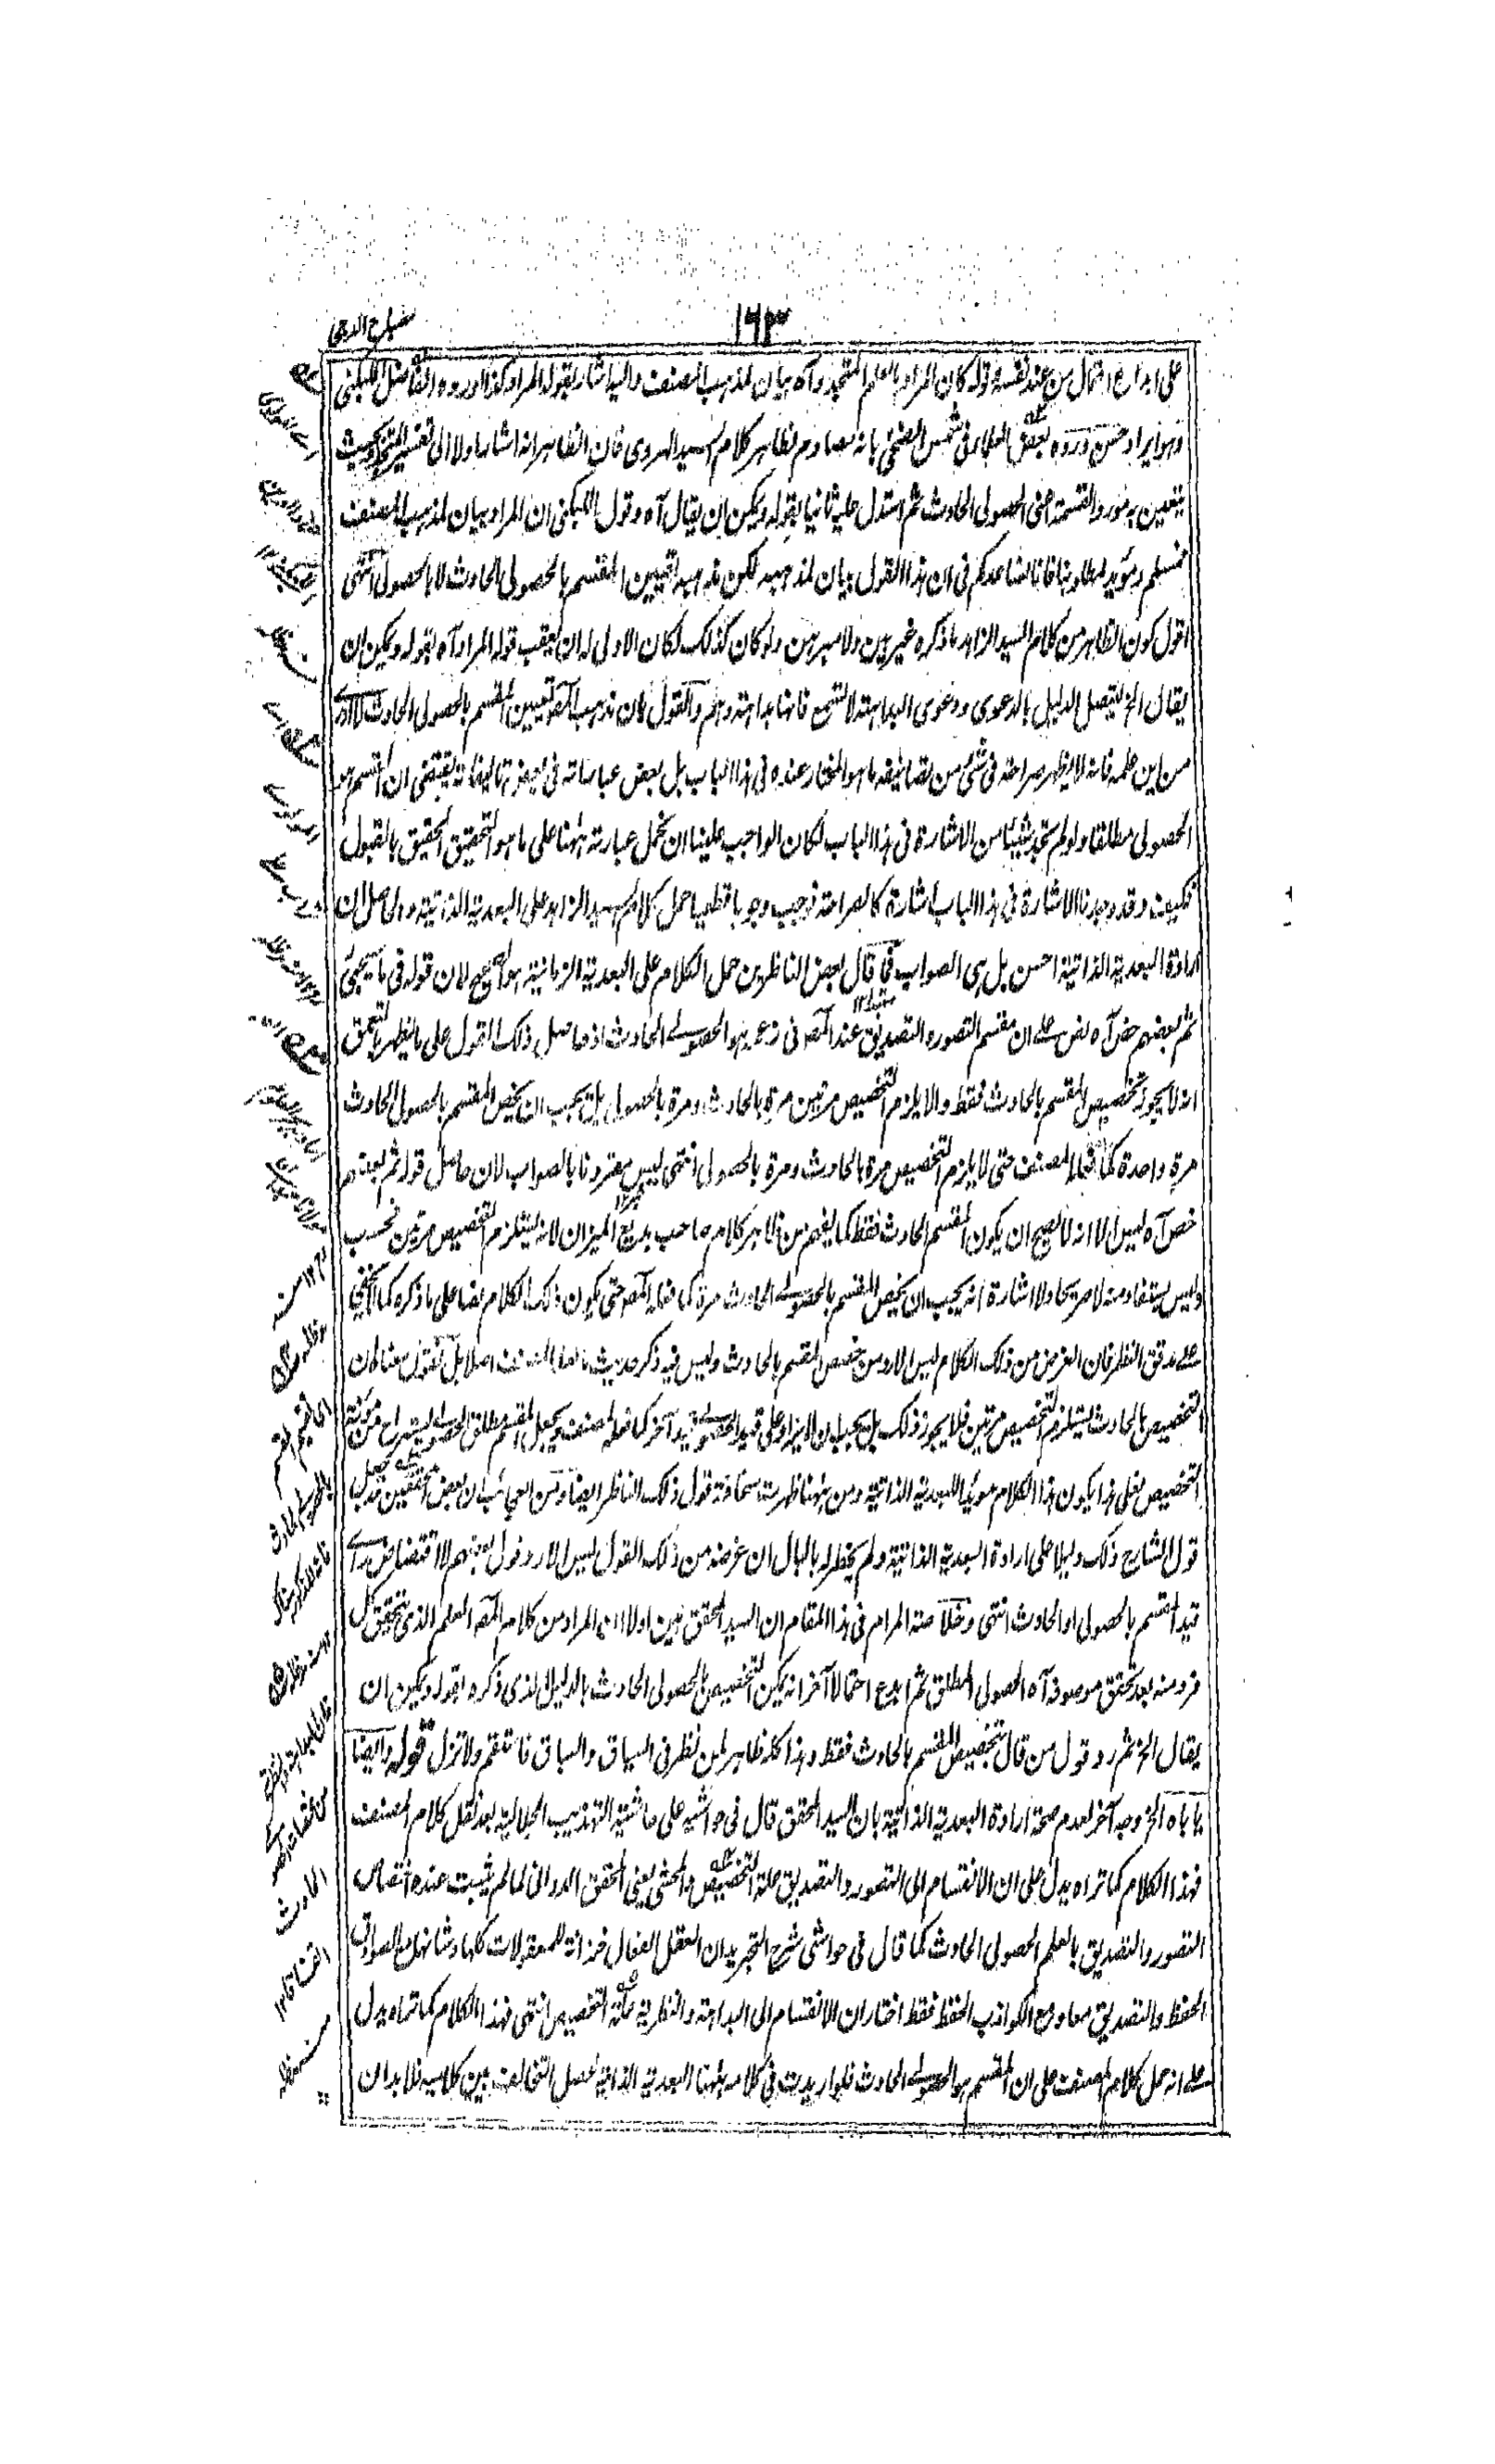 ۱۶۳
مصباح الدجى
على ابداع احتمال من عند نفسه وقوله كان المراد بالعلم المتجدد آه بيان لمذهب المصنف واليه اشار بقوله المراد كذا اورده الفاضل اللبكنى
وهو ايراد حسن ورده بعض العلماء فى شمس الضحى بانه مصادم لظاهر كلام السيد الهروى فان الظاهر انه اشار اولا الى تفسير المتجدد بحيث
يتعين به مورد القسمة اعنى الحصولى الحادث ثم استدل عليه ثانيا بقوله ويمكن ان يقال آه وقول اللبكنى ان المراد بيان لمذهب المصنف
فمسلم ومؤيد لمطلوبنا فانا نساعدكم فى ان هذا القول بيان لمذهبه لكن مذهبه تعيين المقسم بالحصولى الحادث لا بالحصولى انتهى
اقول كون الظاهر من كلام السيد الزاهد ما ذكره غير بين ولا مبرهن ولو كان كذلك لكان الاولى له ان يعقب قوله المراد آه بقوله ويمكن ان
يقال الخ ليتصل الدليل بالدعوى ودعوى البداهة لا تسمع فانها بداهة وهم والقول بان مذهب المصـ تعيين المقسم بالحصولى الحادث لا ادرى
من اين علمه فانه لا يظهر صراحة فى شئ من تصانيفه ما هو المختار عنده فى هذا الباب بل بعض عباراته فى بعض تاليفاته يقتضى ان المقسم هو
الحصولى مطلقا ولو لم تجد شيئا من الاشارة فى هذا الباب لكان الواجب علينا ان نحمل عبارته ههنا على ما هو التحقيق الحقيق بالقبول
فكيف وقد وجدنا الاشارة فى هذا الباب اشارة كالصراحة فوجب وجوبا قطعيا حمل كلام السيد الزاهد على البعدية الذاتية والحاصل ان
ارادة البعدية الذاتية احسن بل هى الصواب فما قال بعض الناظرين حمل الكلام على البعدية الزمانية هو الصحيح لان قوله فى ما سيجئ
ثم بعضهم خص آه نص على ان مقسم التصور والتصديق عند المصـ فى زعمه هو الحصولى الحادث اذ حاصل ذلك القول على ما يظهر بالتعمق
انه لا يجوز تخصيص المقسم بالحادث فقط والا يلزم التخصيص مرتين مرة بالحادث ومرة بالحصولى بل يجب ان يخص المقسم بالحصولى الحادث
مرة واحدة كما فعله المصنف حتى لا يلزم التخصيص مرة بالحادث ومرة بالحصولى انتهى ليس مقرونا بالصواب لان حاصل قوله ثم بعضهم
خص آه ليس الا انه لا يصح ان يكون المقسم الحادث فقط كما يفهم من ظاهر كلام صاحب بديع الميزان لانه يستلزم التخصيص مرتين فحسب
وليس يستفاد منه لا صريحا ولا اشارة انه يجب ان يخص المقسم بالحصولى الحادث مرة كما فعله المصـ حتى يكون ذلك الكلام نصا على ما ذكره كما لا يخفى
على مدقق النظر فان الغرض من ذلك الكلام ليس الا رد من خصص المقسم بالحادث وليس فيه ذكر حديث ما فعله المصنف اصلا بل نقول معناه ان
التخصيص بالحادث يستلزم التخصيص مرتين فلا يجوز ذلك بل يجب ان لا يزاد على قيد الحصولى قيد آخر كما فعله المصنف ويجعل المقسم مطلق الحصولى ليستراح من مؤنة
التخصيص فعلى هذا يكون هذا الكلام مويدا للبعدية الذاتية ومن ههنا ظهرت سخافة قول ذلك الناظر ايضا ومن العجائب ان بعض المحققين قد جعل
قول الشارح ذلك دليلا على ارادة البعدية الذاتية ولم يخطر له بالبال ان غرضه من ذلك القول ليس الا رد قول بعضهم لا اقتضاض رأى
قيد المقسم بالحصولى او الحادث انتهى وخلاصة المرام فى هذا المقام ان السيد المحقق بين اولا ان المراد من كلام المصـ العلم الذى يتحقق كل
فرد منه بعد تحقق موصوفه آه الحصولى المطلق ثم ابدع احتمالا آخر انه يمكن التخصيص بالحصولى الحادث بالدليل الذى ذكره بقوله ويمكن ان
يقال الخ ثم رد قول من قال بتخصيص المقسم بالحادث فقط وهذا كله ظاهر لمن نظر فى السياق والسباق فاستقم ولا تزل قوله وايضا
ياباه الخ وجه آخر لعدم صحة ارادة البعدية الذاتية بان السيد المحقق قال فى حواشيه على حاشية التهذيب الجلالية بعد نقل كلام المصنف
فهذا الكلام كما تراه يدل على ان الانقسام الى التصور والتصديق علة التخصيص والمحشى يعنى المحقق الدوانى لما لم يثبت عنده اختصاص
التصور والتصديق بالعلم الحصولى الحادث كما قال فى حواشى شرح التجريد ان العقل الفعال خزانة للمعقولات كلها وشانها مع الصوادق
الحفظ والتصديق معا ومع الكواذب الحفظ فقط اختار ان الانقسام الى البداهة والنظرية علة التخصيص انتهى فهذا الكلام كما تراه يدل
على انه حمل كلام المصنف على ان المقسم هو الحصولى الحادث فلو اريدت فى كلامه ههنا البعدية الذاتية لحصل التخالف بين كلاميه فلا بد ان